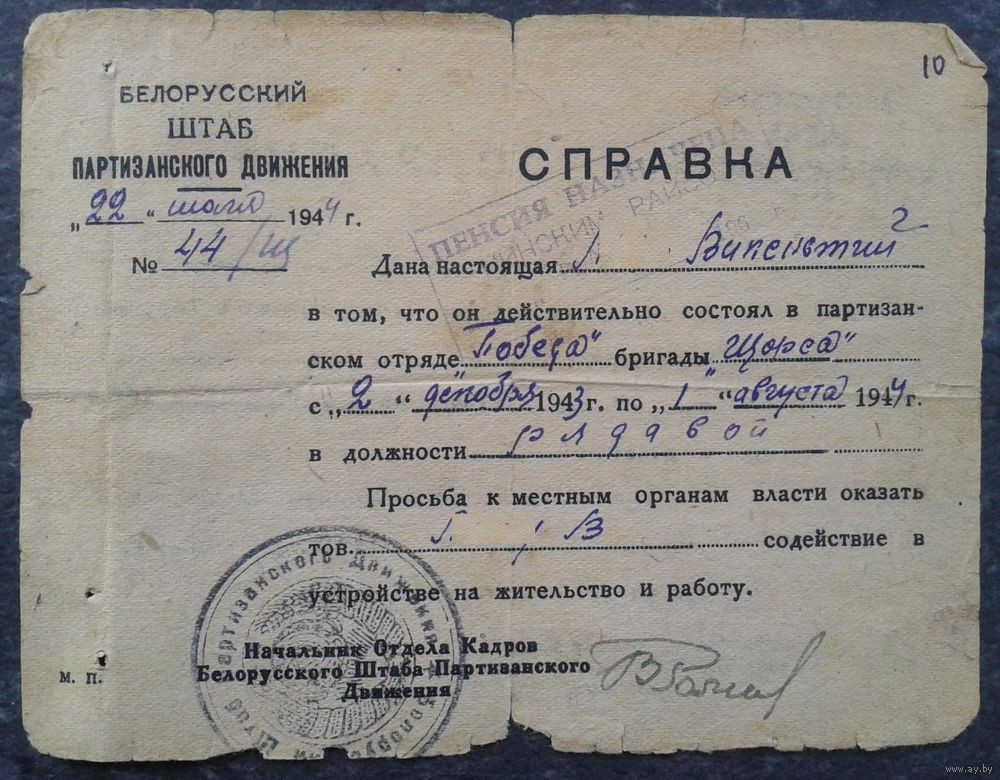 10
БЕЛОРУССКИЙ
ШТАБ
ПАРТИЗАНСКОГО ДВИЖЕНИЯ
„22“ 1944 г.
№ 44/
СПРАВКА
ПЕНСИЯ НАЗНАЧЕНА
Дана настоящая
в том, что он действительно состоял в партизан-
ском отряде „Победа" бригады „Щорса"
с „2“ декабря 1943 г. по „1“ августа 1944 г.
в должности рядавой
Просьба к местным органам власти оказать
тов. В содействие в
устройстве на жительство и работу.
Начальник Отдела Кадров
Белорусского Штаба Партизанского
Движения
м. п.
www.ay.by